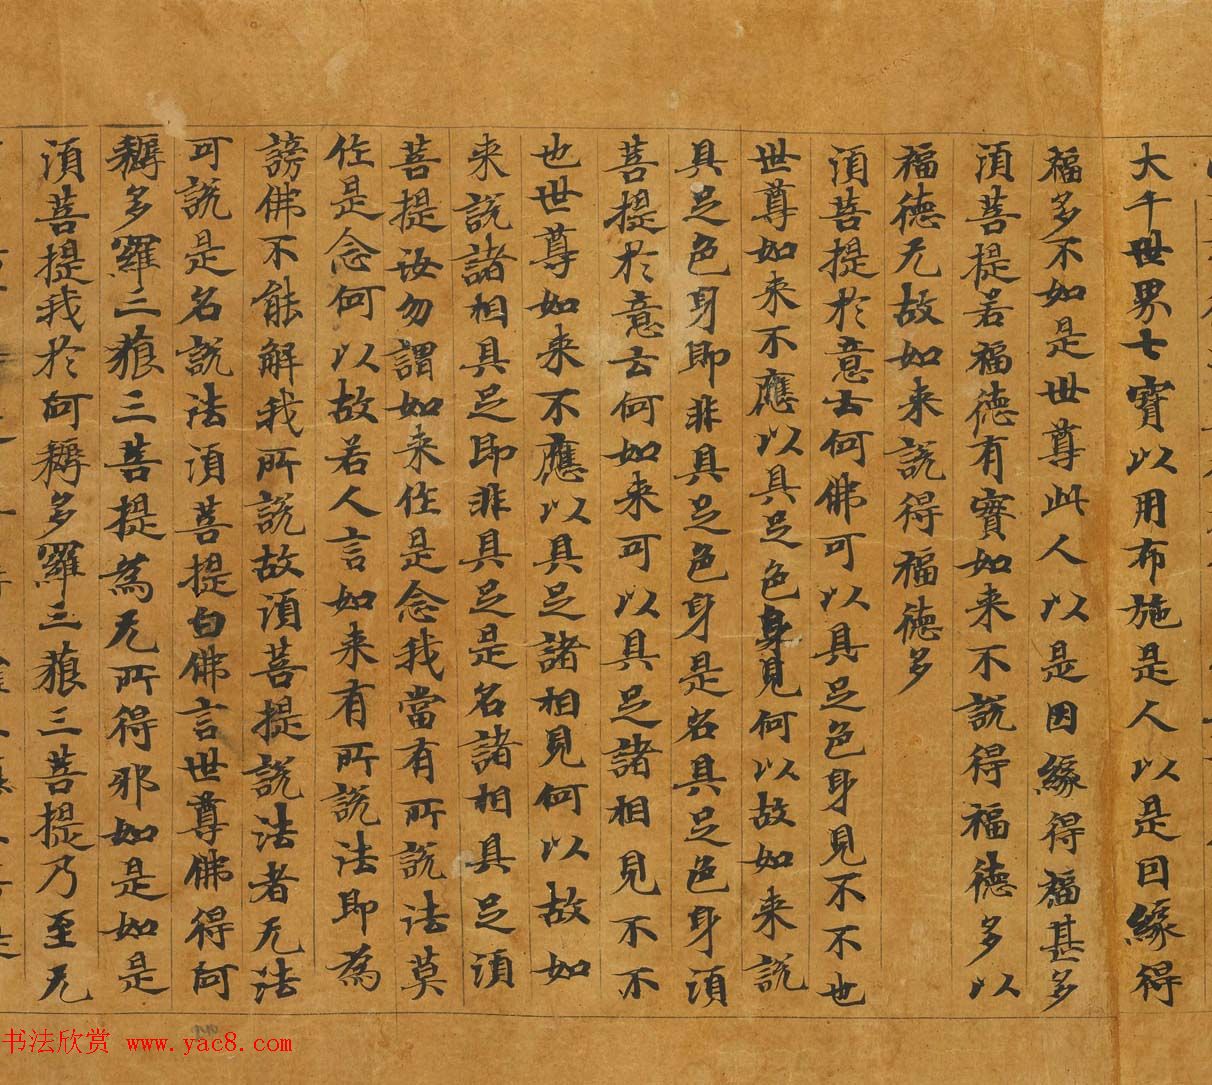 大千世界七寶以用布施是人以是因緣得
福多不如是世尊此人以是因緣得福甚多
湏菩提若福德有實如来不說得福德多以
福德无故如来說得福德多
湏菩提於意云何佛可以具足色身見不不也
世尊如来不應以具足色身見何以故如来說
具足色身即非具足色身是名具足色身湏
菩提於意云何如来可以具足諸相見不不
也世尊如来不應以具足諸相見何以故如
来說諸相具足即非具足是名諸相具足湏
菩提汝勿謂如来作是念我當有所說法莫
作是念何以故若人言如来有所說法即為
謗佛不能解我所說故湏菩提說法者无法
可說是名說法湏菩提白佛言世尊佛得阿
耨多羅三藐三菩提為无所得邪如是如是
湏菩提我於阿耨多羅三藐三菩提乃至无
书法欣赏 www.yac8.com